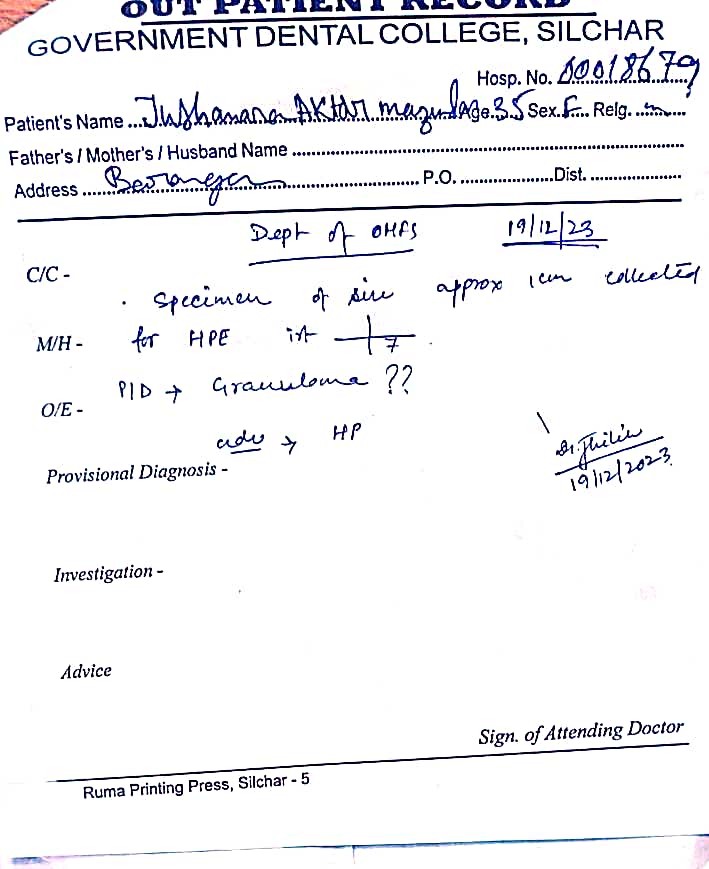 OUT PATIENT RECORD
GOVERNMENT DENTAL COLLEGE, SILCHAR
Hosp. No. 00018679
Patient's Name ... Aktar mazu Age. 35 Sex. F Relg. m
Father's / Mother's / Husband Name
Address P.O. Dist.
Dept of OMFS 19/12/23
C/C -
. Specimen of size approx 1cm collected
M/H - for HPE irt 7.
PID → Granuloma ??
O/E -
adv → HP
Provisional Diagnosis -
19/12/2023
Investigation -
Advice
Sign. of Attending Doctor
Ruma Printing Press, Silchar - 5